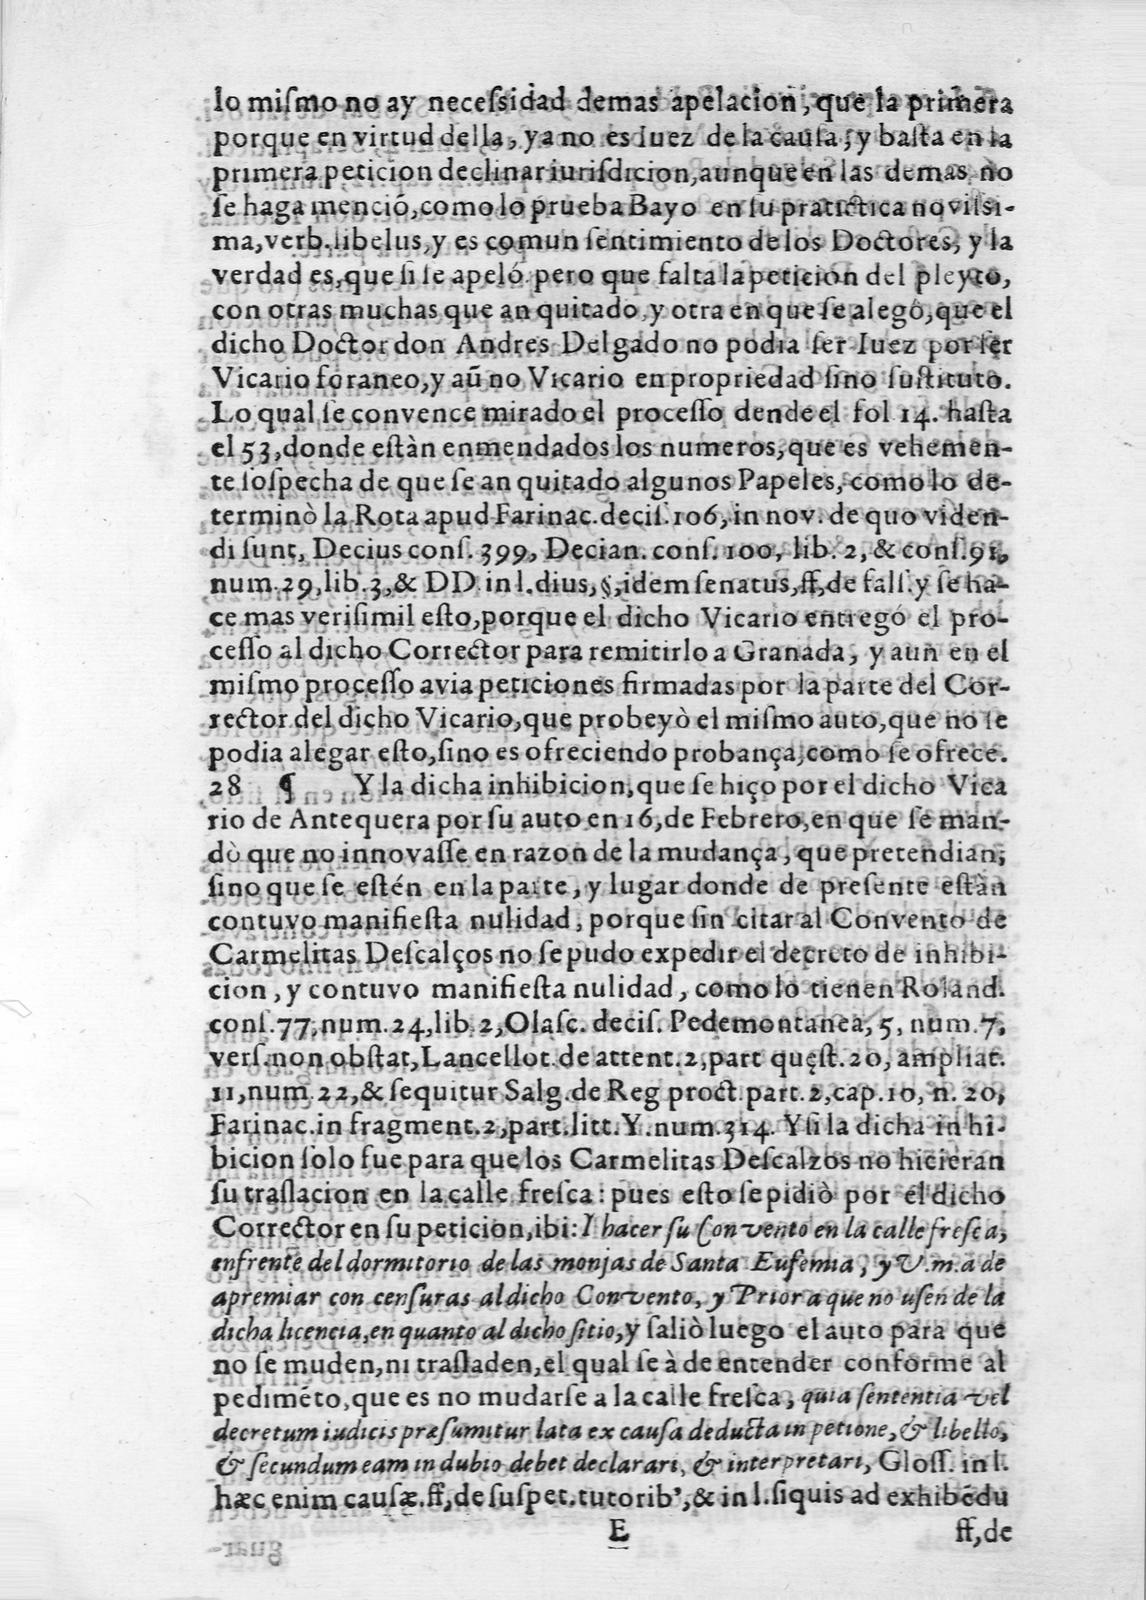 lo miſmo no ay neceſsidad demas apelacion, que la primera
porque en virtud della, ya no es Iuez de la cauſa, y baſta en la
primera peticion declinar iuriſdicion, aunque en las demas no
ſe haga menciõ, como lo prueba Bayo en ſu pratictica noviſsi-
ma, verb. libelus, y es comun ſentimiento de los Doctores, y la
verdad es, que ſi ſe apelò pero que falta la peticion del pleyto,
con otras muchas que an quitado, y otra en que ſe alegò, que el
dicho Doctor don Andres Delgado no podia ſer Iuez por ſer
Vicario foraneo, y aũ no Vicario en propriedad ſino ſuſtituto.
Lo qual ſe convence mirado el proceſſo dende el fol 14. haſta
el 53, donde eſtàn enmendados los numeros, que es vehemen-
te ſoſpecha de que ſe an quitado algunos Papeles, como lo de-
terminò la Rota apud Farinac. deciſ. 106, in nov. de quo viden-
di ſunt, Decius conſ. 399, Decian. conſ. 100, lib. 2, & conſ. 91,
num. 29, lib. 3, & DD. in l. dius, §, idem ſenatus, ff, de falſ. y ſe ha-
ce mas veriſimil eſto, porque el dicho Vicario entregó el pro-
ceſſo al dicho Corrector para remitirlo a Granada, y aun en el
miſmo proceſſo avia peticiones firmadas por la parte del Cor-
rector del dicho Vicario, que probeyò el miſmo auto, que no ſe
podia alegar eſto, ſino es ofreciendo probança, como ſe ofrece.
28 ¶ Y la dicha inhibicion, que ſe hiço por el dicho Vica
rio de Antequera por ſu auto en 16, de Febrero, en que ſe man-
dò que no innovaſſe en razon de la mudança, que pretendian,
ſino que ſe eſtén en la parte, y lugar donde de preſente eſtàn
contuvo manifieſta nulidad, porque ſin citar al Convento de
Carmelitas Deſcalços no ſe pudo expedir el decreto de inhibi-
cion, y contuvo manifieſta nulidad, como lo tienen Roland.
conſ. 77, num. 24, lib. 2, Olaſc. deciſ. Pedemontanea, 5, num. 7,
verſ. non obſtat, Lancellot. de attent. 2, part quęſt. 20, ampliat.
11, num. 22, & ſequitur Salg. de Reg proct. part. 2, cap. 10, n. 20,
Farinac. in fragment. 2, part. litt. Y. num. 314. Y ſi la dicha inhi-
bicion ſolo fue para que los Carmelitas Deſcalzos no hicieran
ſu traſlacion en la calle freſca: pues eſto ſe pidiò por el dicho
Corrector en ſu peticion, ibi: I hacer ſu Convento en la calle freſca,
enfrente del dormitorio de las monjas de Santa Eufemia, y V. m. a de
apremiar con cenſuras al dicho Convento, y Prior a que no uſen de la
dicha licencia, en quanto al dicho ſitio, y ſaliò luego el auto para que
no ſe muden, ni traſladen, el qual ſe à de entender conforme al
pedimẽto, que es no mudarſe a la calle freſca, quia ſententia vel
decretum iudicis præſumitur lata ex cauſa deducta in petione, & libello,
& ſecundum eam in dubio debet declarari, & interpretari, Gloſſ. in l.
hæc enim cauſæ. ff, de ſuſpet. tutorib', & in l. ſiquis ad exhibẽdu
E ff, de